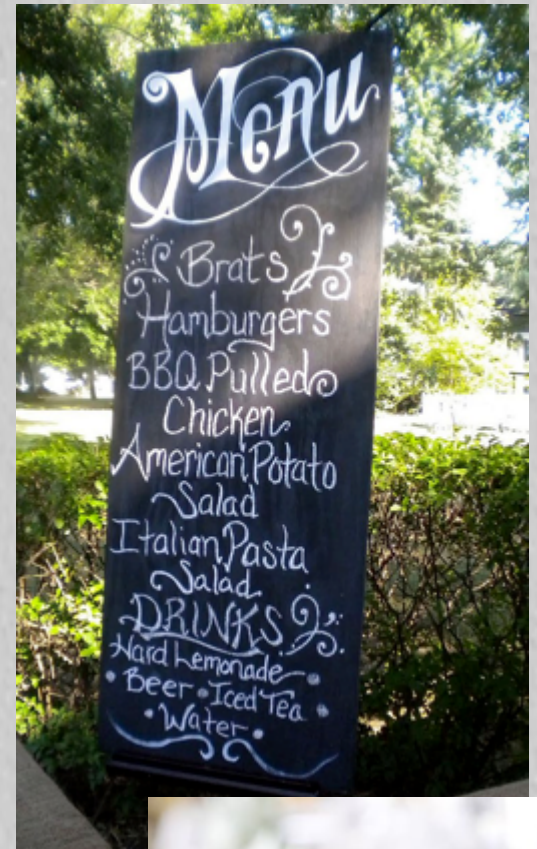 Menu
Brats
Hamburgers
BBQ Pulled
Chicken
American Potato
Salad
Italian Pasta
Salad
DRINKS
Hard Lemonade
• Beer • Iced Tea •
• Water •